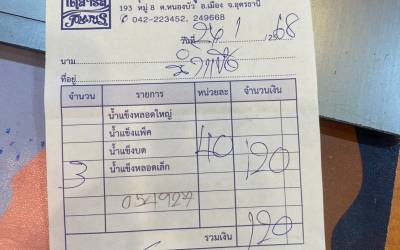 193 หมู่ 8 ต.หนองบัว อ.เมือง จ.อุดรธานี
✆ 042-223452, 249668
วันที่ 26 / 1 / 2568
นาม
ที่อยู่
จำนวน รายการ หน่วยละ จำนวนเงิน
น้ำแข็งหลอดใหญ่
น้ำแข็งแพ็ค
น้ำแข็งบด 40 120
3 น้ำแข็งหลอดเล็ก
054927
รวมเงิน 120